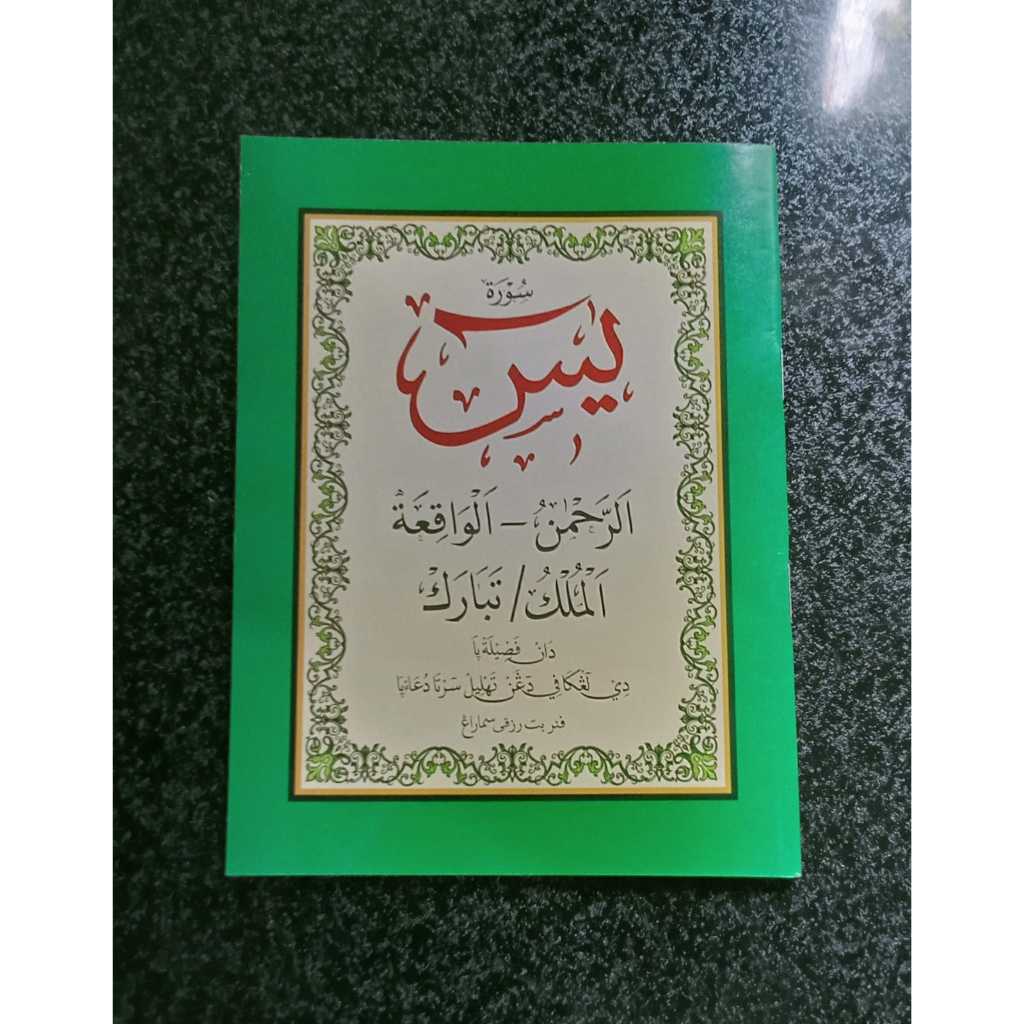 سُوْرَة
يٰسٓ
اَلرَّحْمٰنُ – اَلْوَاقِعَةْ
اَلْمُلْكُ / تَبَارَكْ
دَانْ فَضِيْلَةْ ۑَا
دِيْ لَڠْكَافِيْ دَڠَنْ تَهْلِيْل سَرْتَا دُعَاءْ ۑَا
فنربت رزقى سماراڠ